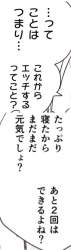 …って
ことは
つまり…
これから
エッチする
ってこと?(元気でしょ?
たっぷり
寝たから
まだまだ
あと2回は
できるよね?